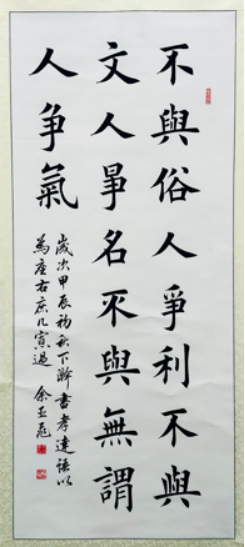 不與俗人爭利不與
文人爭名不與無謂
人爭氣
歲次甲辰初秋下澣書孝達語以
為座右庶几寡過 余亚飛